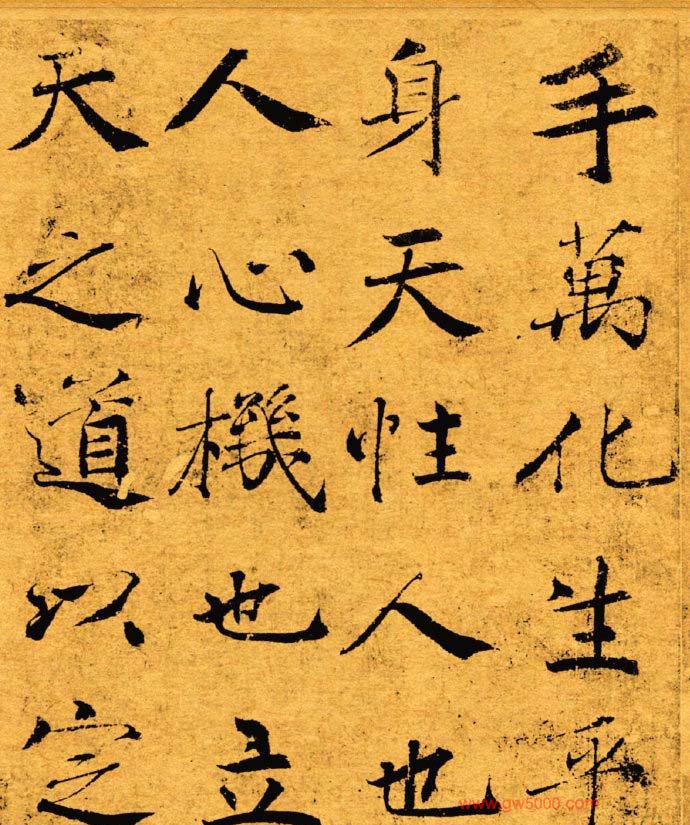 手萬化生乎
身天性人也
人心機也立
天之道以定
www.gw5000.com